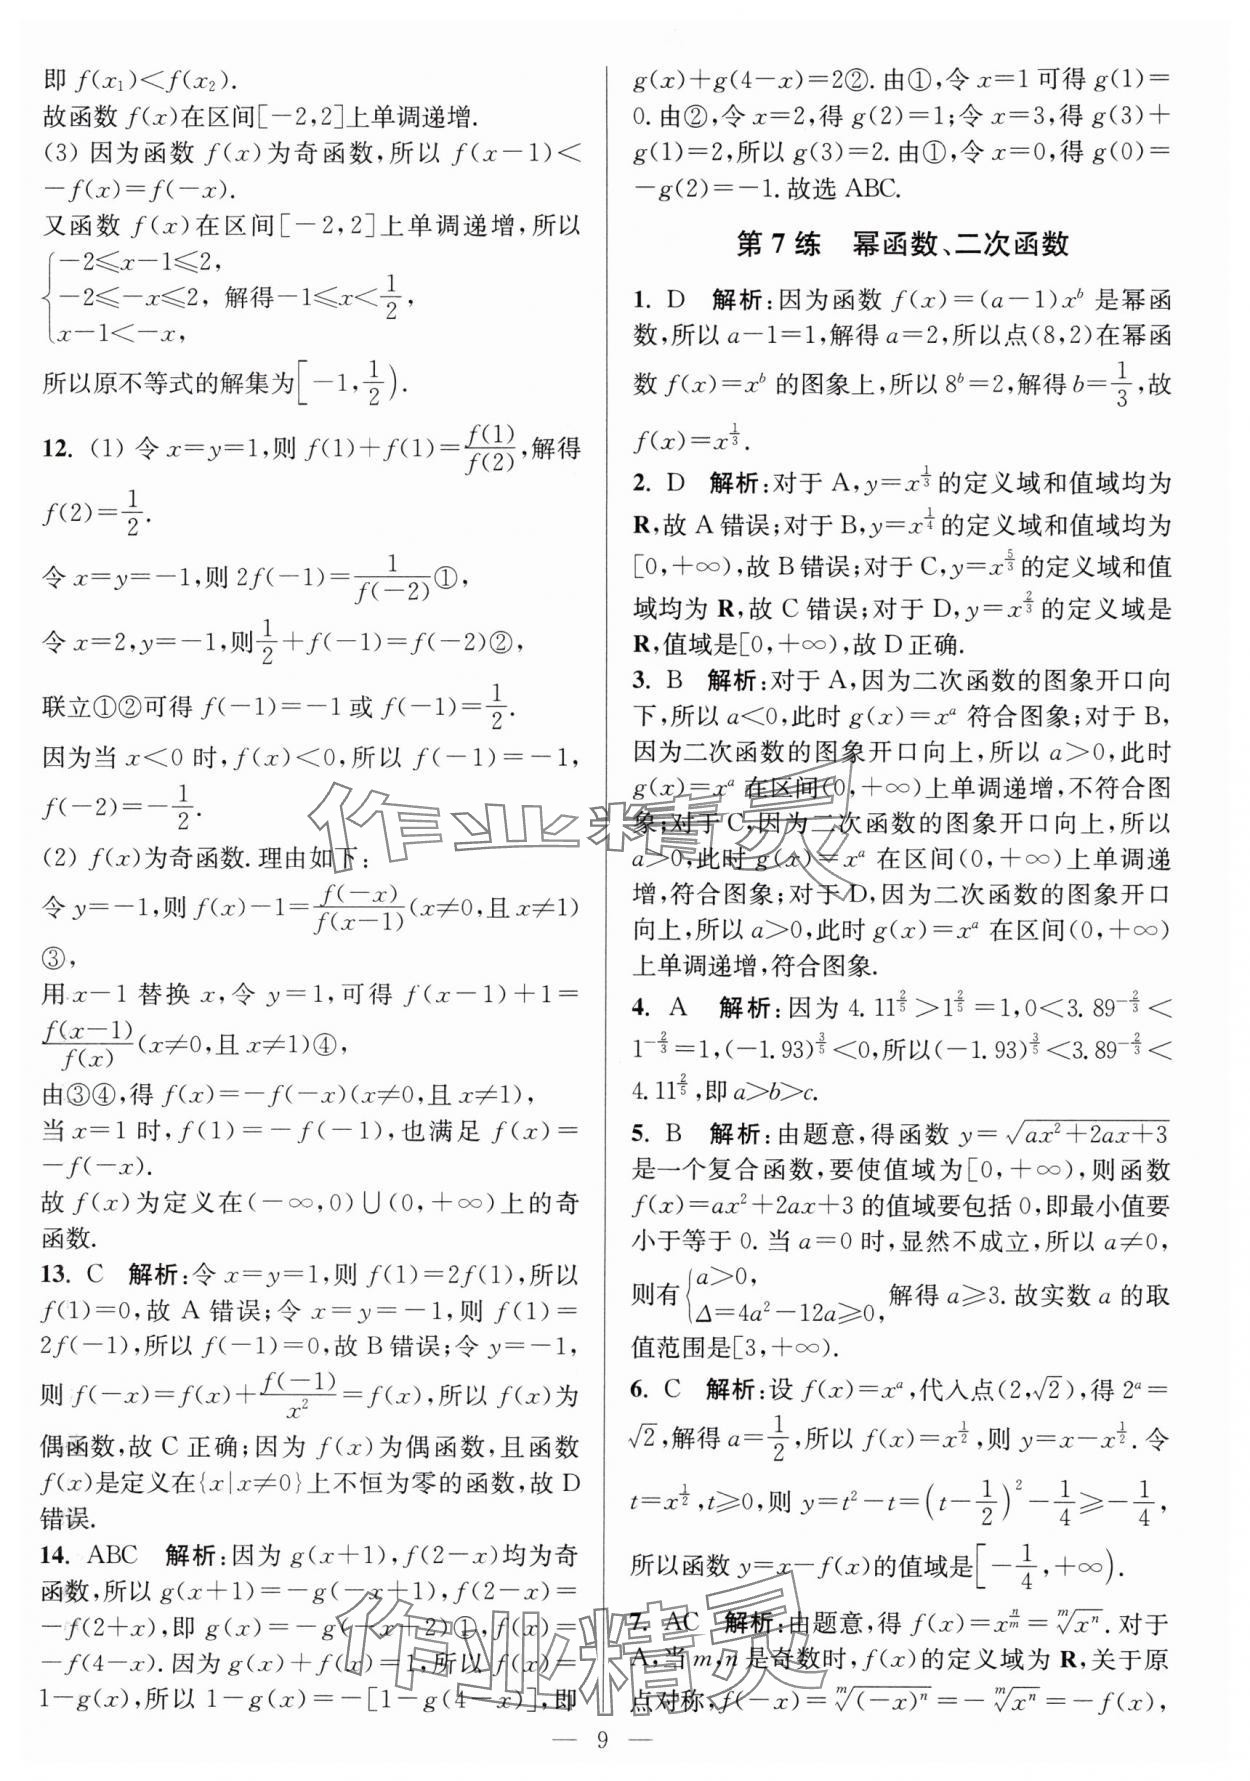 即 f(x₁)<f(x₂).
故函数 f(x)在区间[-2,2]上单调递增.
(3) 因为函数 f(x)为奇函数,所以 f(x-1)<
-f(x)=f(-x).
又函数 f(x)在区间[-2,2]上单调递增,所以
{-2≤x-1≤2,
-2≤-x≤2, 解得-1≤x<1/2,
x-1<-x,
所以原不等式的解集为[-1,1/2).
12. (1) 令 x=y=1,则 f(1)+f(1)=f(1)/f(2),解得
f(2)=1/2.
令 x=y=-1,则 2f(-1)=1/f(-2)①,
令 x=2,y=-1,则1/2+f(-1)=f(-2)②,
联立①②可得 f(-1)=-1 或 f(-1)=1/2.
因为当 x<0 时,f(x)<0,所以 f(-1)=-1,
f(-2)=-1/2.
(2) f(x)为奇函数.理由如下:
令 y=-1,则 f(x)-1=f(-x)/f(x-1)(x≠0,且 x≠1)
③,
用 x-1 替换 x,令 y=1,可得 f(x-1)+1=
f(x-1)/f(x)(x≠0,且 x≠1)④,
由③④,得 f(x)=-f(-x)(x≠0,且 x≠1),
当 x=1 时,f(1)=-f(-1),也满足 f(x)=
-f(-x).
故 f(x)为定义在(-∞,0)∪(0,+∞)上的奇
函数.
13. C 解析:令 x=y=1,则 f(1)=2f(1),所以
f(1)=0,故 A 错误;令 x=y=-1,则 f(1)=
2f(-1),所以 f(-1)=0,故 B 错误;令 y=-1,
则 f(-x)=f(x)+f(-1)/x²=f(x),所以 f(x)为
偶函数,故 C 正确;因为 f(x)为偶函数,且函数
f(x)是定义在{x|x≠0}上不恒为零的函数,故 D
错误.
14. ABC 解析:因为 g(x+1),f(2-x)均为奇
函数,所以 g(x+1)=-g(-x+1),f(2-x)=
-f(2+x),即 g(x)=-g(-x+2)①,f(x)=
-f(4-x).因为 g(x)+f(x)=1,所以 f(x)=
1-g(x),所以 1-g(x)=-[1-g(4-x)],即
g(x)+g(4-x)=2②.由①,令 x=1 可得 g(1)=
0.由②,令 x=2,得 g(2)=1;令 x=3,得 g(3)+
g(1)=2,所以 g(3)=2.由①,令 x=0,得 g(0)=
-g(2)=-1.故选 ABC.
第 7 练 幂函数、二次函数
1. D 解析:因为函数 f(x)=(a-1)x^b 是幂函
数,所以 a-1=1,解得 a=2,所以点(8,2)在幂函
数 f(x)=x^b 的图象上,所以 8^b=2,解得 b=1/3,故
f(x)=x^(1/3).
2. D 解析:对于 A,y=x^(1/3)的定义域和值域均为
R,故 A 错误;对于 B,y=x^(1/4)的定义域和值域均为
[0,+∞),故 B 错误;对于 C,y=x^(5/3)的定义域和值
域均为 R,故 C 错误;对于 D,y=x^(2/3)的定义域是
R,值域是[0,+∞),故 D 正确.
3. B 解析:对于 A,因为二次函数的图象开口向
下,所以 a<0,此时 g(x)=x^a 符合图象;对于 B,
因为二次函数的图象开口向上,所以 a>0,此时
g(x)=x^a 在区间(0,+∞)上单调递增,不符合图
象;对于 C,因为二次函数的图象开口向上,所以
a>0,此时 g(x)=x^a 在区间(0,+∞)上单调递
增,符合图象;对于 D,因为二次函数的图象开口
向上,所以 a>0,此时 g(x)=x^a 在区间(0,+∞)
上单调递增,符合图象.
4. A 解析:因为 4.11^(2/5)>1^(2/5)=1,0<3.89^(-2/3)<
1^(-2/3)=1,(-1.93)^(3/5)<0,所以(-1.93)^(3/5)<3.89^(-2/3)<
4.11^(2/5),即 a>b>c.
5. B 解析:由题意,得函数 y=√(ax²+2ax+3)
是一个复合函数,要使值域为[0,+∞),则函数
f(x)=ax²+2ax+3 的值域要包括 0,即最小值要
小于等于 0.当 a=0 时,显然不成立,所以 a≠0,
则有{a>0,
Δ=4a²-12a≥0, 解得 a≥3.故实数 a 的取
值范围是[3,+∞).
6. C 解析:设 f(x)=x^a,代入点(2,√2),得 2^a=
√2,解得 a=1/2,所以 f(x)=x^(1/2),则 y=x-x^(1/2).令
t=x^(1/2),t≥0,则 y=t²-t=(t-1/2)²-1/4≥-1/4,
所以函数 y=x-f(x)的值域是[-1/4,+∞).
7. AC 解析:由题意,得 f(x)=x^(n/m)=ᵐ√(xⁿ).对于
A,当 m,n 是奇数时,f(x)的定义域为 R,关于原
点对称,f(-x)=ᵐ√((-x)ⁿ)=-ᵐ√(xⁿ)=-f(x),
— 9 —
作业精灵
作业精灵